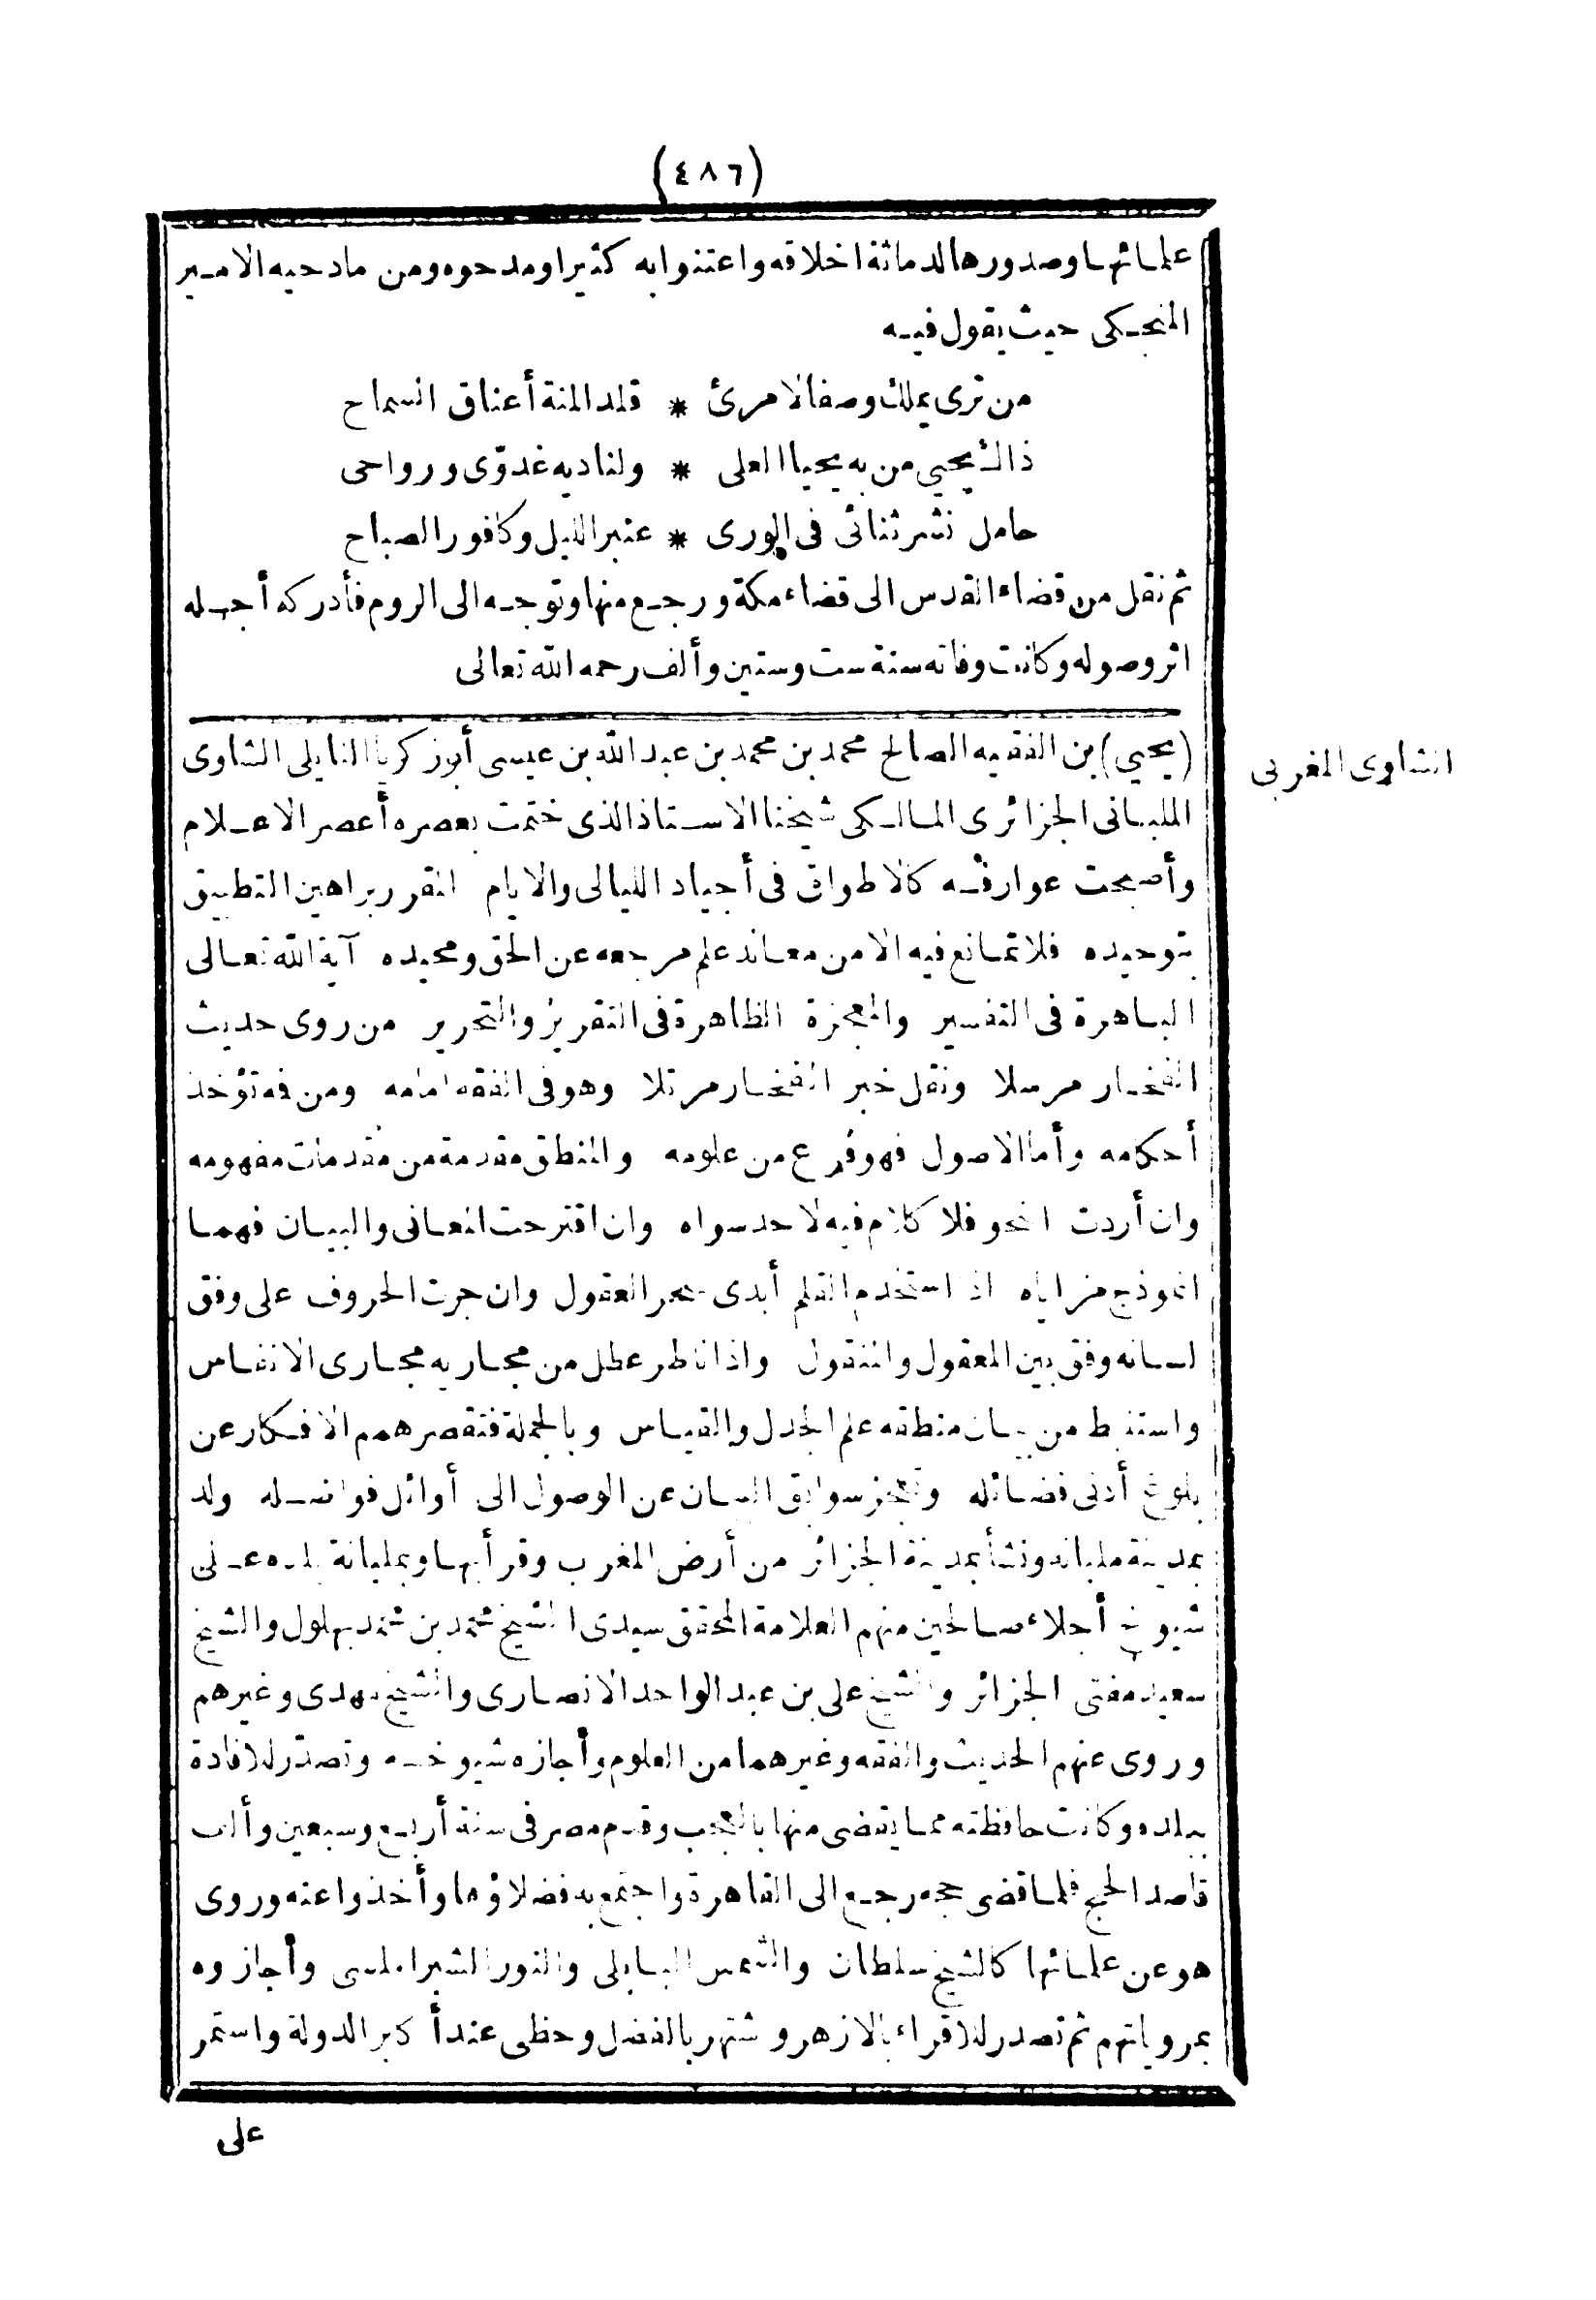 (٤٨٦)
علمائها وصدورها لدماثة اخلاقه واعتنوا به كثيرا ومدحوه ومن مادحيه الامير
المنجكى حيث يقول فيه
من ترى يملك وصفا لامرئ * قلد المنة أعناق السماح
ذاك يحيى من به يحيا العلى * ولناديه غدوّى ورواحى
حامل نشر ثنائى فى الورى * عنبر الليل وكافور الصباح
ثم نقل من قضاء القدس الى قضاء مكة ورجع منها وتوجه الى الروم فأدركه أجله
اثر وصوله وكانت وفاته سنة ست وستين وألف رحمه الله تعالى
الشاوى المغربى
(يحيى) بن الفقيه الصالح محمد بن محمد بن عبد الله بن عيسى أبو زكريا النايلى الشاوى
الملبانى الجزائرى المالكى شيخنا الاستاذ الذى ختمت بعصره أعصر الاعلام
وأصبحت عوارفه كالاطواق فى أجياد الليالى والايام المقرر براهين التطبيق
بتوحيده فلا تمانع فيه الا من معاند علم مرجعه عن الحق ومحيده آية الله تعالى
الباهرة فى التفسير والمعجزة الظاهرة فى التقرير والتحرير من روى حديث
الفخار مرسلا ونقل خبر الفخار مرتلا وهو فى الفقه امامه ومن فمه تؤخذ
أحكامه وأما الاصول فهو فرع من علومه والمنطق مقدمة من مقدمات مفهومه
وان أردت النحو فلا كلام فيه لاحد سواه وان اقترحت المعانى والبيان فهما
انموذج مزاياه اذا استخدم القلم أبدى سحر العقول وان جرت الحروف على وفق
لسانه وفق بين المعقول والمنقول واذا ناظر عطل من مجاريه مجارى الانفاس
واستنبط من بيان منطقه علم الجدل والقياس وبالجملة فتقصر همم الافكار عن
بلوغ أدنى فضائله وتعجز سوابق البيان عن الوصول الى أوائل فواضله ولد
بمدينة مليانه ونشأ بمدينة الجزائر من أرض المغرب وقرأ بها وبمليانة بلده على
شيوخ أجلاء صالحين منهم العلامة المحقق سيدى الشيخ محمد بن محمد بهلول والشيخ
سعيد مفتى الجزائر والشيخ على بن عبد الواحد الانصارى والشيخ مهدى وغيرهم
وروى عنهم الحديث والفقه وغيرهما من العلوم وأجازه شيوخه وتصدّر للافادة
ببلده وكانت حافظته مما يقضى منها بالعجب وقدم مصر فى سنة أربع وسبعين وألف
قاصدا الحج فلما قضى حجه رجع الى القاهرة واجتمع به فضلاؤها وأخذوا عنه وروى
هو عن علمائها كالشيخ سلطان والشمس البابلى والنور الشبراملسى وأجازوه
بمروياتهم ثم تصدر للاقراء بالازهر واشتهر بالفضل وحظى عند أكابر الدولة واستمر
على